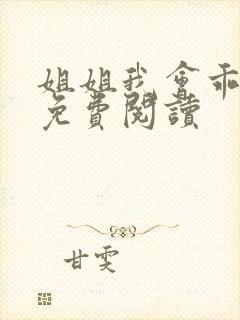 姐姐我會乖
免費閱讀
甘雯